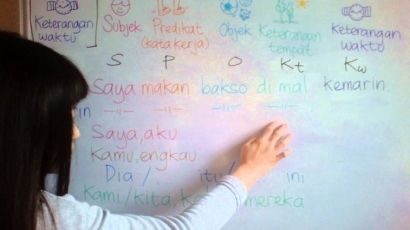 Keterangan waktu Subjek Predikat (kata kerja) Objek Keterangan tempat Keterangan waktu
S P O Kt Kw
Saya makan bakso di mal kemarin
in
Saya, aku
Kamu, engkau
Dia / itu/ ini
Kami/kita, mereka